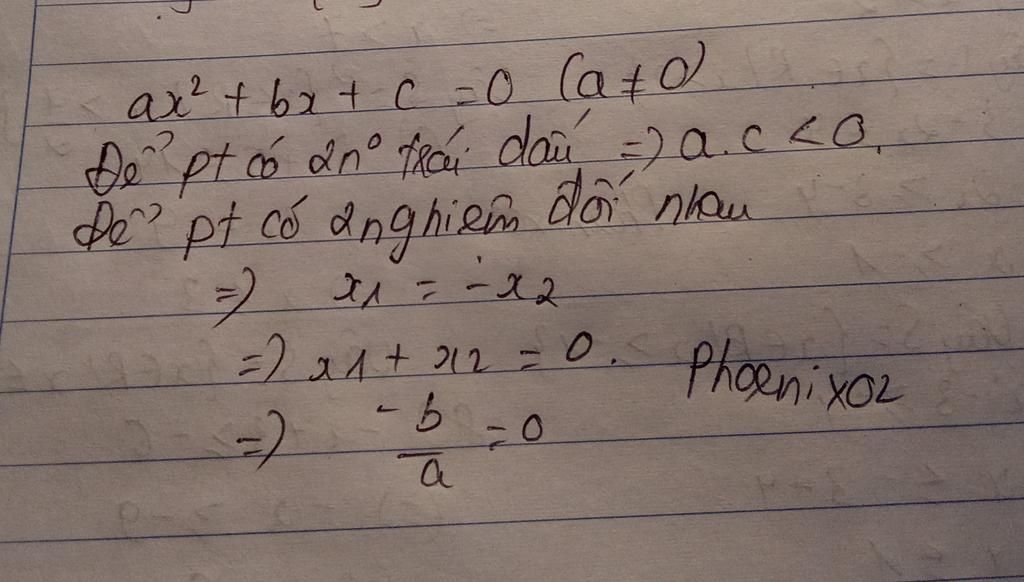 ax² + bx + c = 0 (a ≠ 0)
Để pt có 2n° trái dấu => a.c < 0.
Để pt có 2 nghiệm đối nhau
=> x1 = -x2
=> x1 + x2 = 0.
Phoenix02
=> -b/a = 0